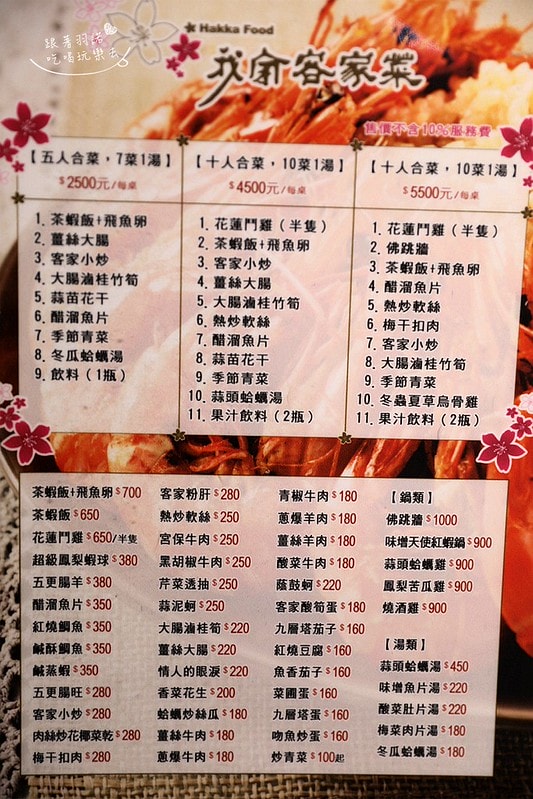 跟著羽諾
吃喝玩樂去
Hakka Food
我famille客家菜
售價不含10%服務費
【五人合菜，7菜1湯】
$2500元/每桌
1. 茶蝦飯+飛魚卵
2. 薑絲大腸
3. 客家小炒
4. 大腸滷桂竹筍
5. 蒜苗花干
6. 醋溜魚片
7. 季節青菜
8. 冬瓜蛤蠣湯
9. 飲料（1瓶）
【十人合菜，10菜1湯】
$4500元/每桌
1. 花蓮鬥雞（半隻）
2. 茶蝦飯+飛魚卵
3. 客家小炒
4. 薑絲大腸
5. 大腸滷桂竹筍
6. 熱炒軟絲
7. 醋溜魚片
8. 蒜苗花干
9. 季節青菜
10. 蒜頭蛤蠣湯
11. 果汁飲料（2瓶）
【十人合菜，10菜1湯】
$5500元/每桌
1. 花蓮鬥雞（半隻）
2. 佛跳牆
3. 茶蝦飯+飛魚卵
4. 醋溜魚片
5. 熱炒軟絲
6. 梅干扣肉
7. 客家小炒
8. 大腸滷桂竹筍
9. 季節青菜
10. 冬蟲夏草烏骨雞
11. 果汁飲料（2瓶）
茶蝦飯+飛魚卵$700
茶蝦飯$650
花蓮鬥雞$650/半隻
超級鳳梨蝦球$380
五更腸羊$380
醋溜魚片$350
紅燒鯛魚$350
鹹酥鯛魚$350
鹹蒸蝦$350
五更腸旺$280
客家小炒$280
肉絲炒花椰菜乾$280
梅干扣肉$280
客家粉肝$280
熱炒軟絲$250
宮保牛肉$250
黑胡椒牛肉$250
芹菜透抽$250
蒜泥蚵$250
大腸滷桂筍$220
薑絲大腸$220
情人的眼淚$220
香菜花生$200
蛤蠣炒絲瓜$180
薑絲牛肉$180
蔥爆牛肉$180
青椒牛肉$180
蔥爆羊肉$180
薑絲羊肉$180
酸菜牛肉$180
蔭鼓蚵$220
客家酸筍蛋$180
九層塔茄子$160
紅燒豆腐$160
魚香茄子$160
菜圃蛋$160
九層塔蛋$160
吻魚炒蛋$160
炒青菜$100起
【鍋類】
佛跳牆$1000
味增天使紅蝦鍋$900
蒜頭蛤蠣雞$900
鳳梨苦瓜雞$900
燒酒雞$900
【湯類】
蒜頭蛤蠣湯$450
味增魚片湯$220
酸菜肚片湯$220
梅菜肉片湯$180
冬瓜蛤蠣湯$180